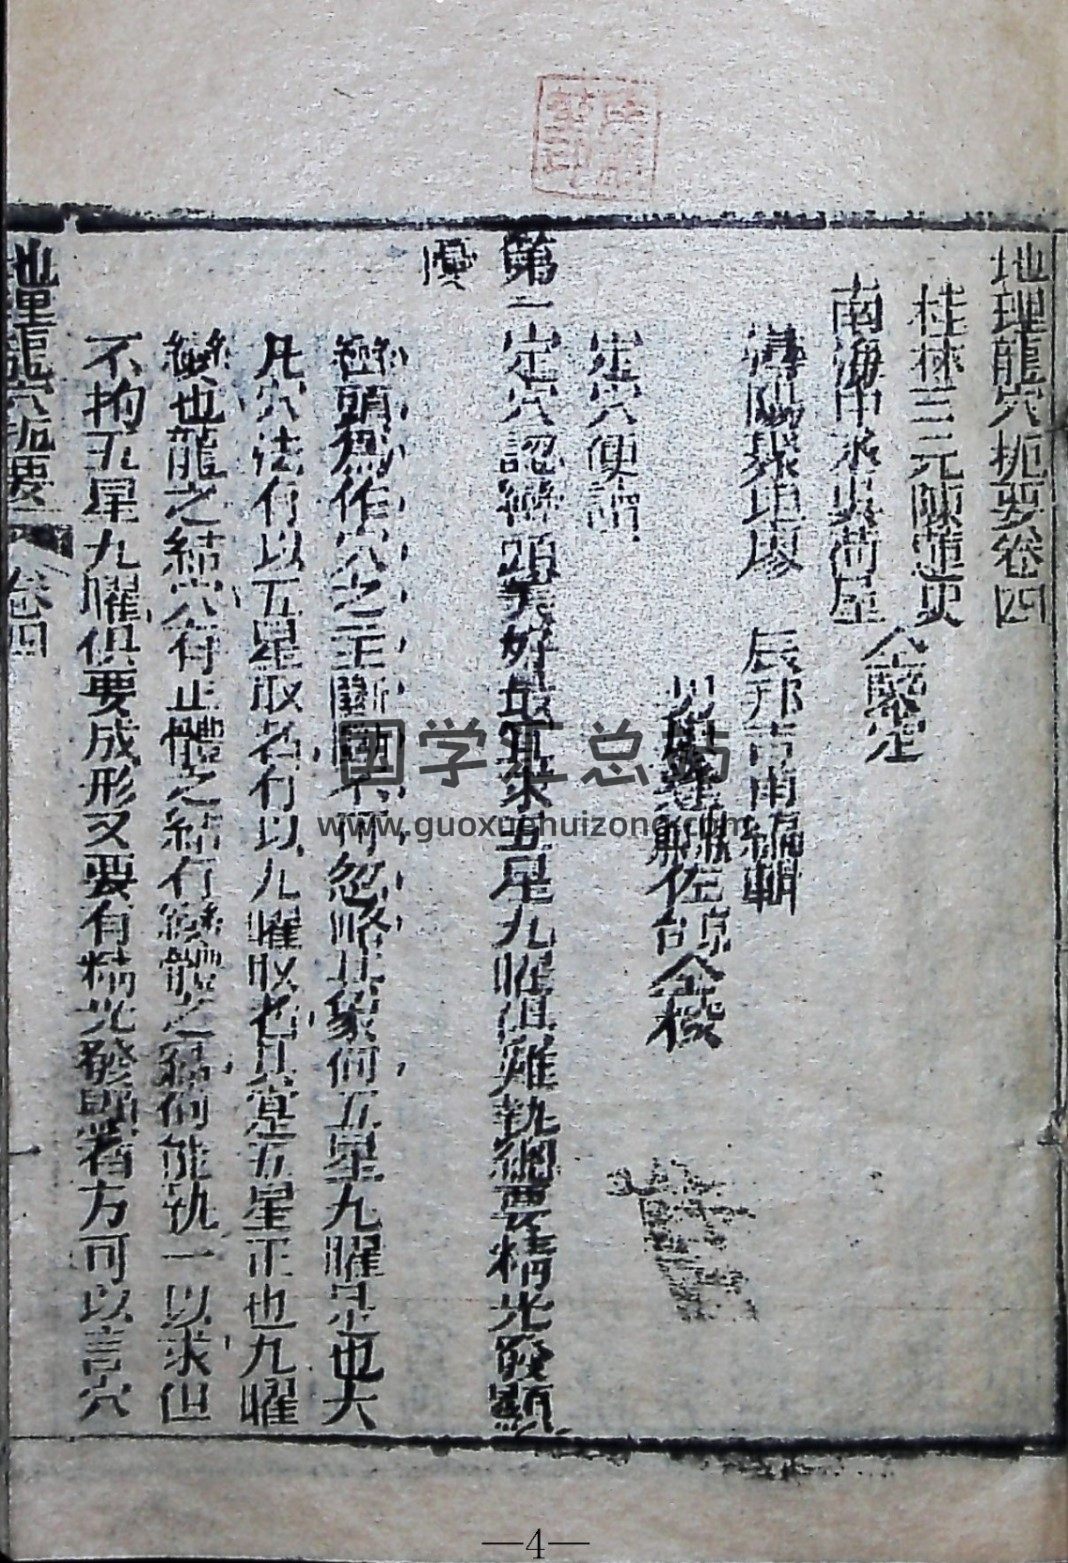 地理龍穴扼要卷四
桂林三元陳蓮史
南海中丞吳荷屋
仝鑒定
潯陽聚垣廖 辰邦吉南編輯
佐 仝校
定穴便讀
第一定穴認巒頭美好最宜求五星九曜俱難執總要精光發顯
巒頭爲作穴之主斷斷不可忽略其象何五星九曜是也大
凡穴法有以五星取名有以九曜取名其寔五星正也九曜
變也龍之結穴有正體之結有變體之結何能執一以求但
不拘五星九曜俱要成形又要有精光發顯者方可以言穴
地理龍穴扼要 卷四
一
国学汇总站
www.guoxuehuizong.com
—4—